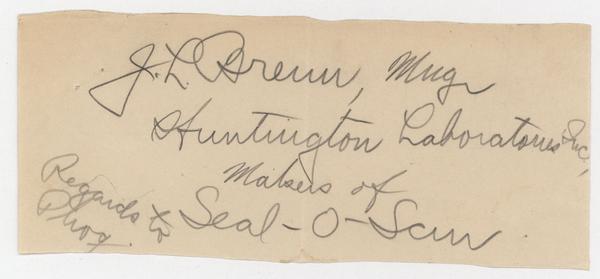 J. L. Brenn, Mngr
Huntington Laboratories Inc,
Makers of
Seal-O-San
Regards to
Phog.